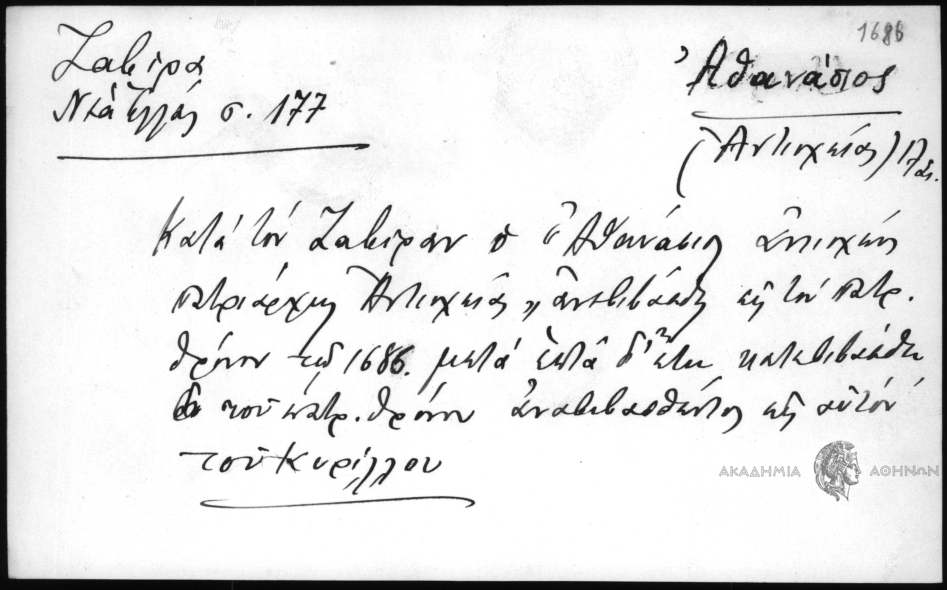 1686
Ζαβίρα
Νέα Ἑλλάς σ. 177
Ἀθανάσιος
(Ἀντιοχείας) 17 αι.
Κατά τόν Ζαβίραν ὁ "Ἀθανάσιος
πατριάρχης Ἀντιοχείας" ἀνεβιβάσθη εἰς τόν πατρ.
θρόνον τῷ 1686. μετά ἑπτά δ' ἔτη κατεβιβάσθη
τοῦ πατρ. θρόνου ἀναβιβασθέντος εἰς αὐτόν
τοῦ Κυρίλλου
ΑΚΑΔΗΜΙΑ ΑΘΗΝΩΝ